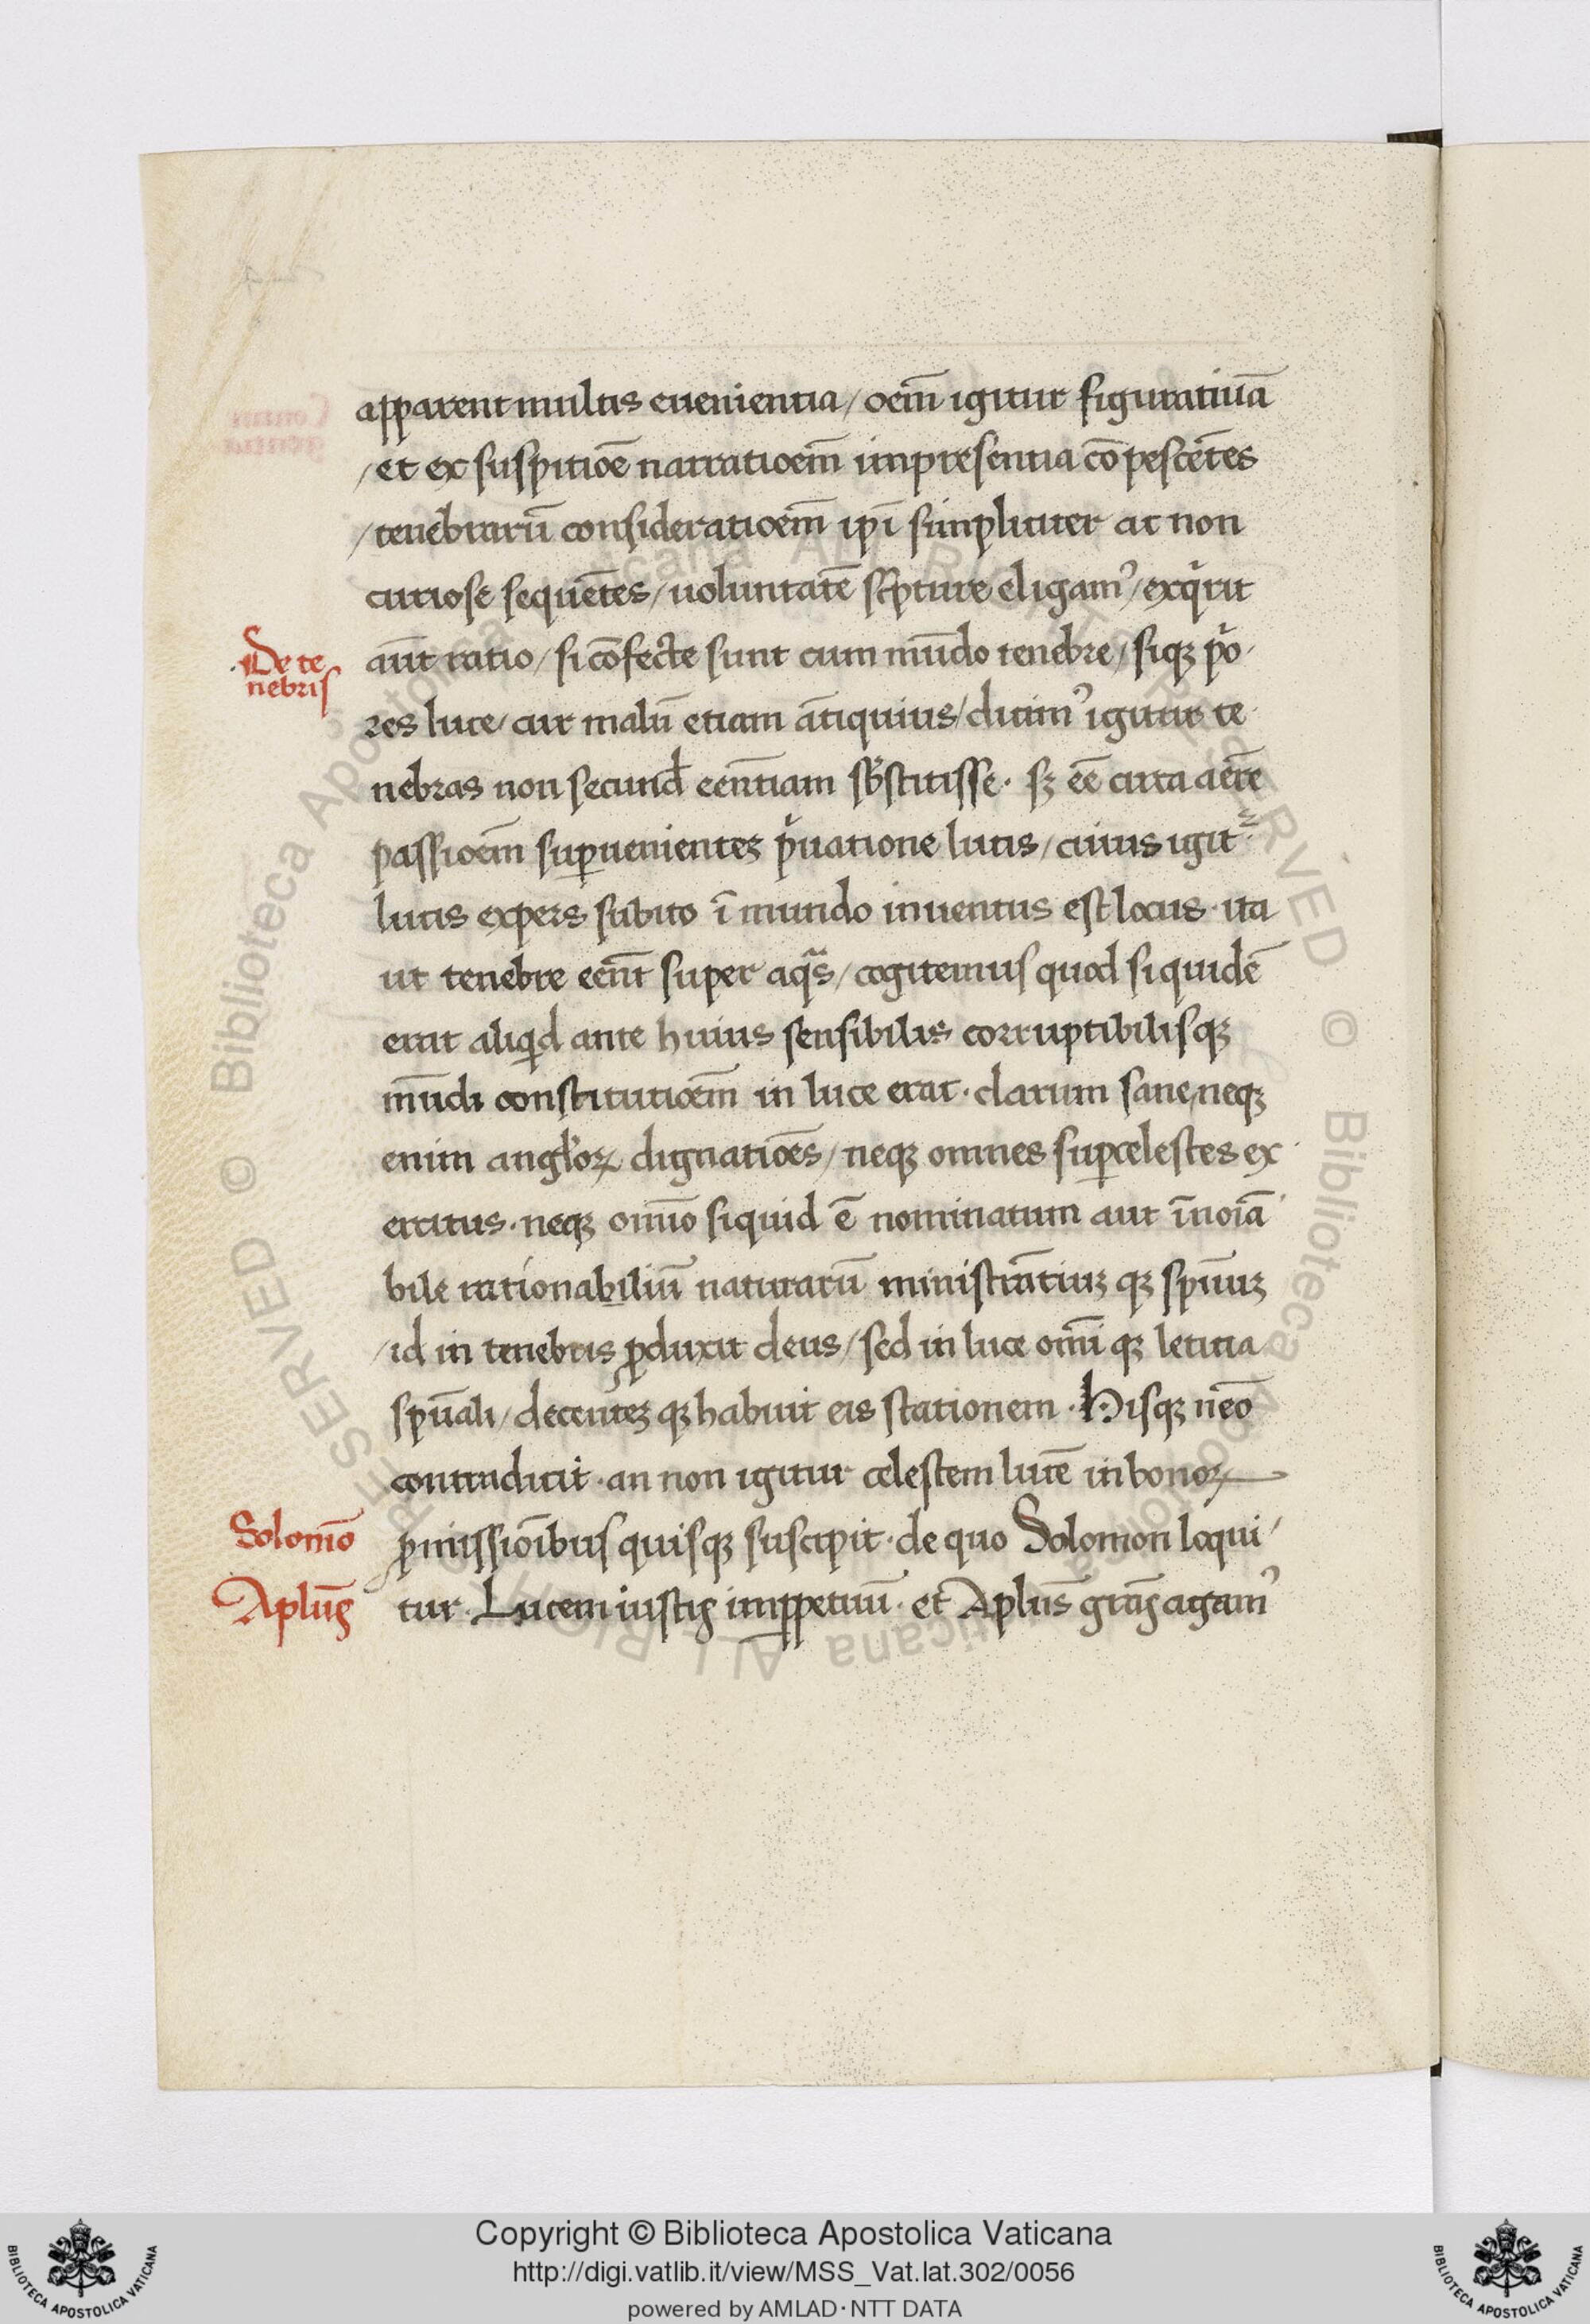 apparent multis euenientia / oem̄ igitur figuratiuā
/ et ex suspitiōe narratioem̄ impresentia cōpescētes
/ tenebrarū consideratioem̄ ip̄i simpliciter ac non
curiose sequētes / uoluntatē sc̄pture eligam᾿ / exq̄rit
De te
nebris
aūt ratio / si cōfecte sunt cum mūdo tenebre / siqꝫ p̄o
res luce / cur malū etiam ātiquius / dicim᾿ igitur te
nebras non secund̄ eēntiam sb̄stitisse · sꝫ eē circa aerē
passioēm suꝑuenientez p̄uatione lucis / cuius igit᷑
lucis expers subito ī mundo inuentus est locus · ita
ut tenebre eēnt super aq̄s / cogitemus quod siquidē
erat aliqd ante huius sensibilis corruptibilisqꝫ
mūdi constitutioēm in luce erat · clarum sane / neqꝫ
enim angl̄oꝝ dignatiōes / neqꝫ omnes suꝑcelestes ex
ercitus · neqꝫ omīo siquid ē nominatum aut īnoīā
bile rationabiliū naturarū ministrātiuꝫ qꝫ sp̄uuꝫ
/ id in tenebris ꝓduxit deus / sed in luce omī qꝫ letitia
sp̄uali / decentez qꝫ habuit eis stationem · Hisqꝫ nēo
contradicit · an non igitur celestem lucē in bonoꝝ
Solomō
ꝓmissiōibus quisqꝫ suscipit · de quo Solomon loqui /
Aplūs
tur · Lucem iustis imꝑpetuū · et Aplūs grās agam᾿
Copyright © Biblioteca Apostolica Vaticana
http://digi.vatlib.it/view/MSS_Vat.lat.302/0056
powered by AMLAD · NTT DATA
BIBLIOTECA APOSTOLICA VATICANA
BIBLIOTECA APOSTOLICA VATICANA